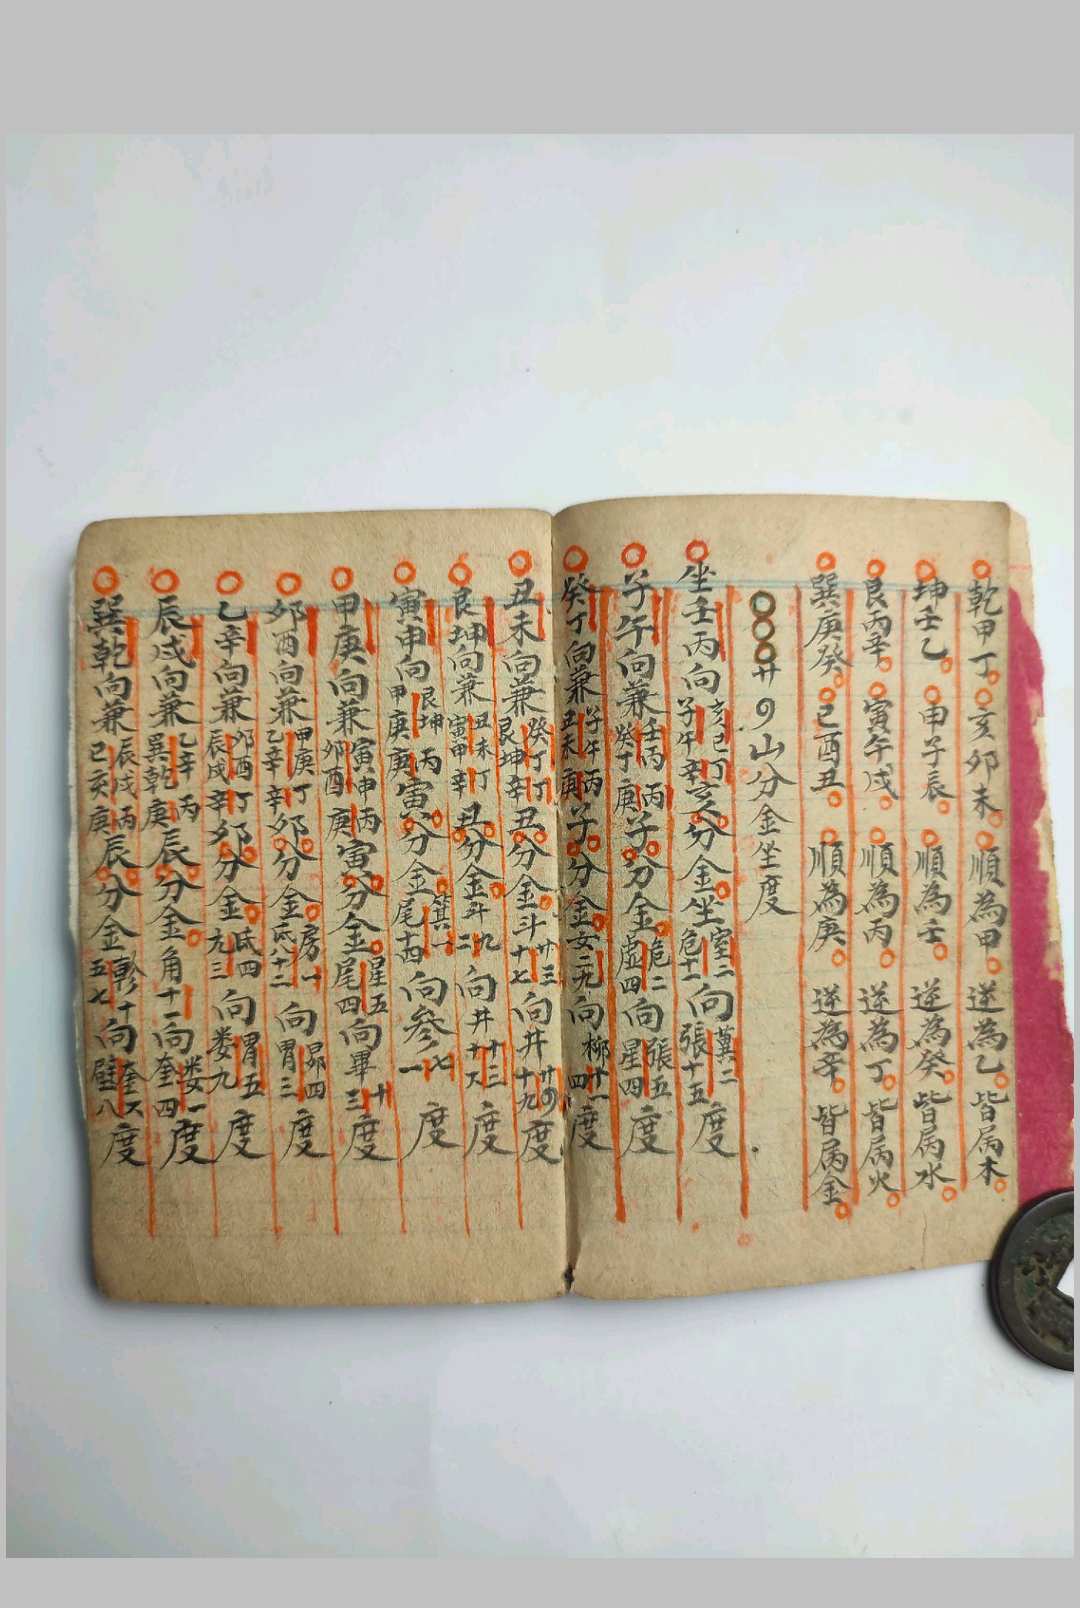 乾甲丁亥卯未順為甲逆為乙皆属木
坤壬乙申子辰順為壬逆為癸皆属水
艮丙辛寅午戌順為丙逆為丁皆属火
巽庚癸巳酉丑順為庚逆為辛皆属金
廿山分金坐度
坐壬丙向亥巳丁子午辛亥分金坐室二危十二向翼二張十五度
子午向兼壬丙丙癸丁庚子分金危二虚四向張五星四度
癸丁向兼子午丙丑未庚子分金女二向柳十一四度
丑未向兼癸丁丁艮坤辛丑分金斗廿三十七向井廿十九度
艮坤向兼丑未丁寅甲辛丑分金斗九二向井十三十六度
寅申向艮坤丙甲庚庚寅分金箕一尾十四向參七一度
甲庚向兼寅申丙卯酉庚寅分金星五尾四向畢十三度
卯酉向兼甲庚丁乙辛辛卯分金房一氐十二向昴四胃三度
乙辛向兼卯酉丁辰戌辛卯分金氐四亢三向胃五娄九度
辰戌向兼乙辛丙巽乾庚辰分金角十一向娄一奎四度
巽乾向兼辰戌丙巳亥庚辰分金軫十五七向奎六壁八度